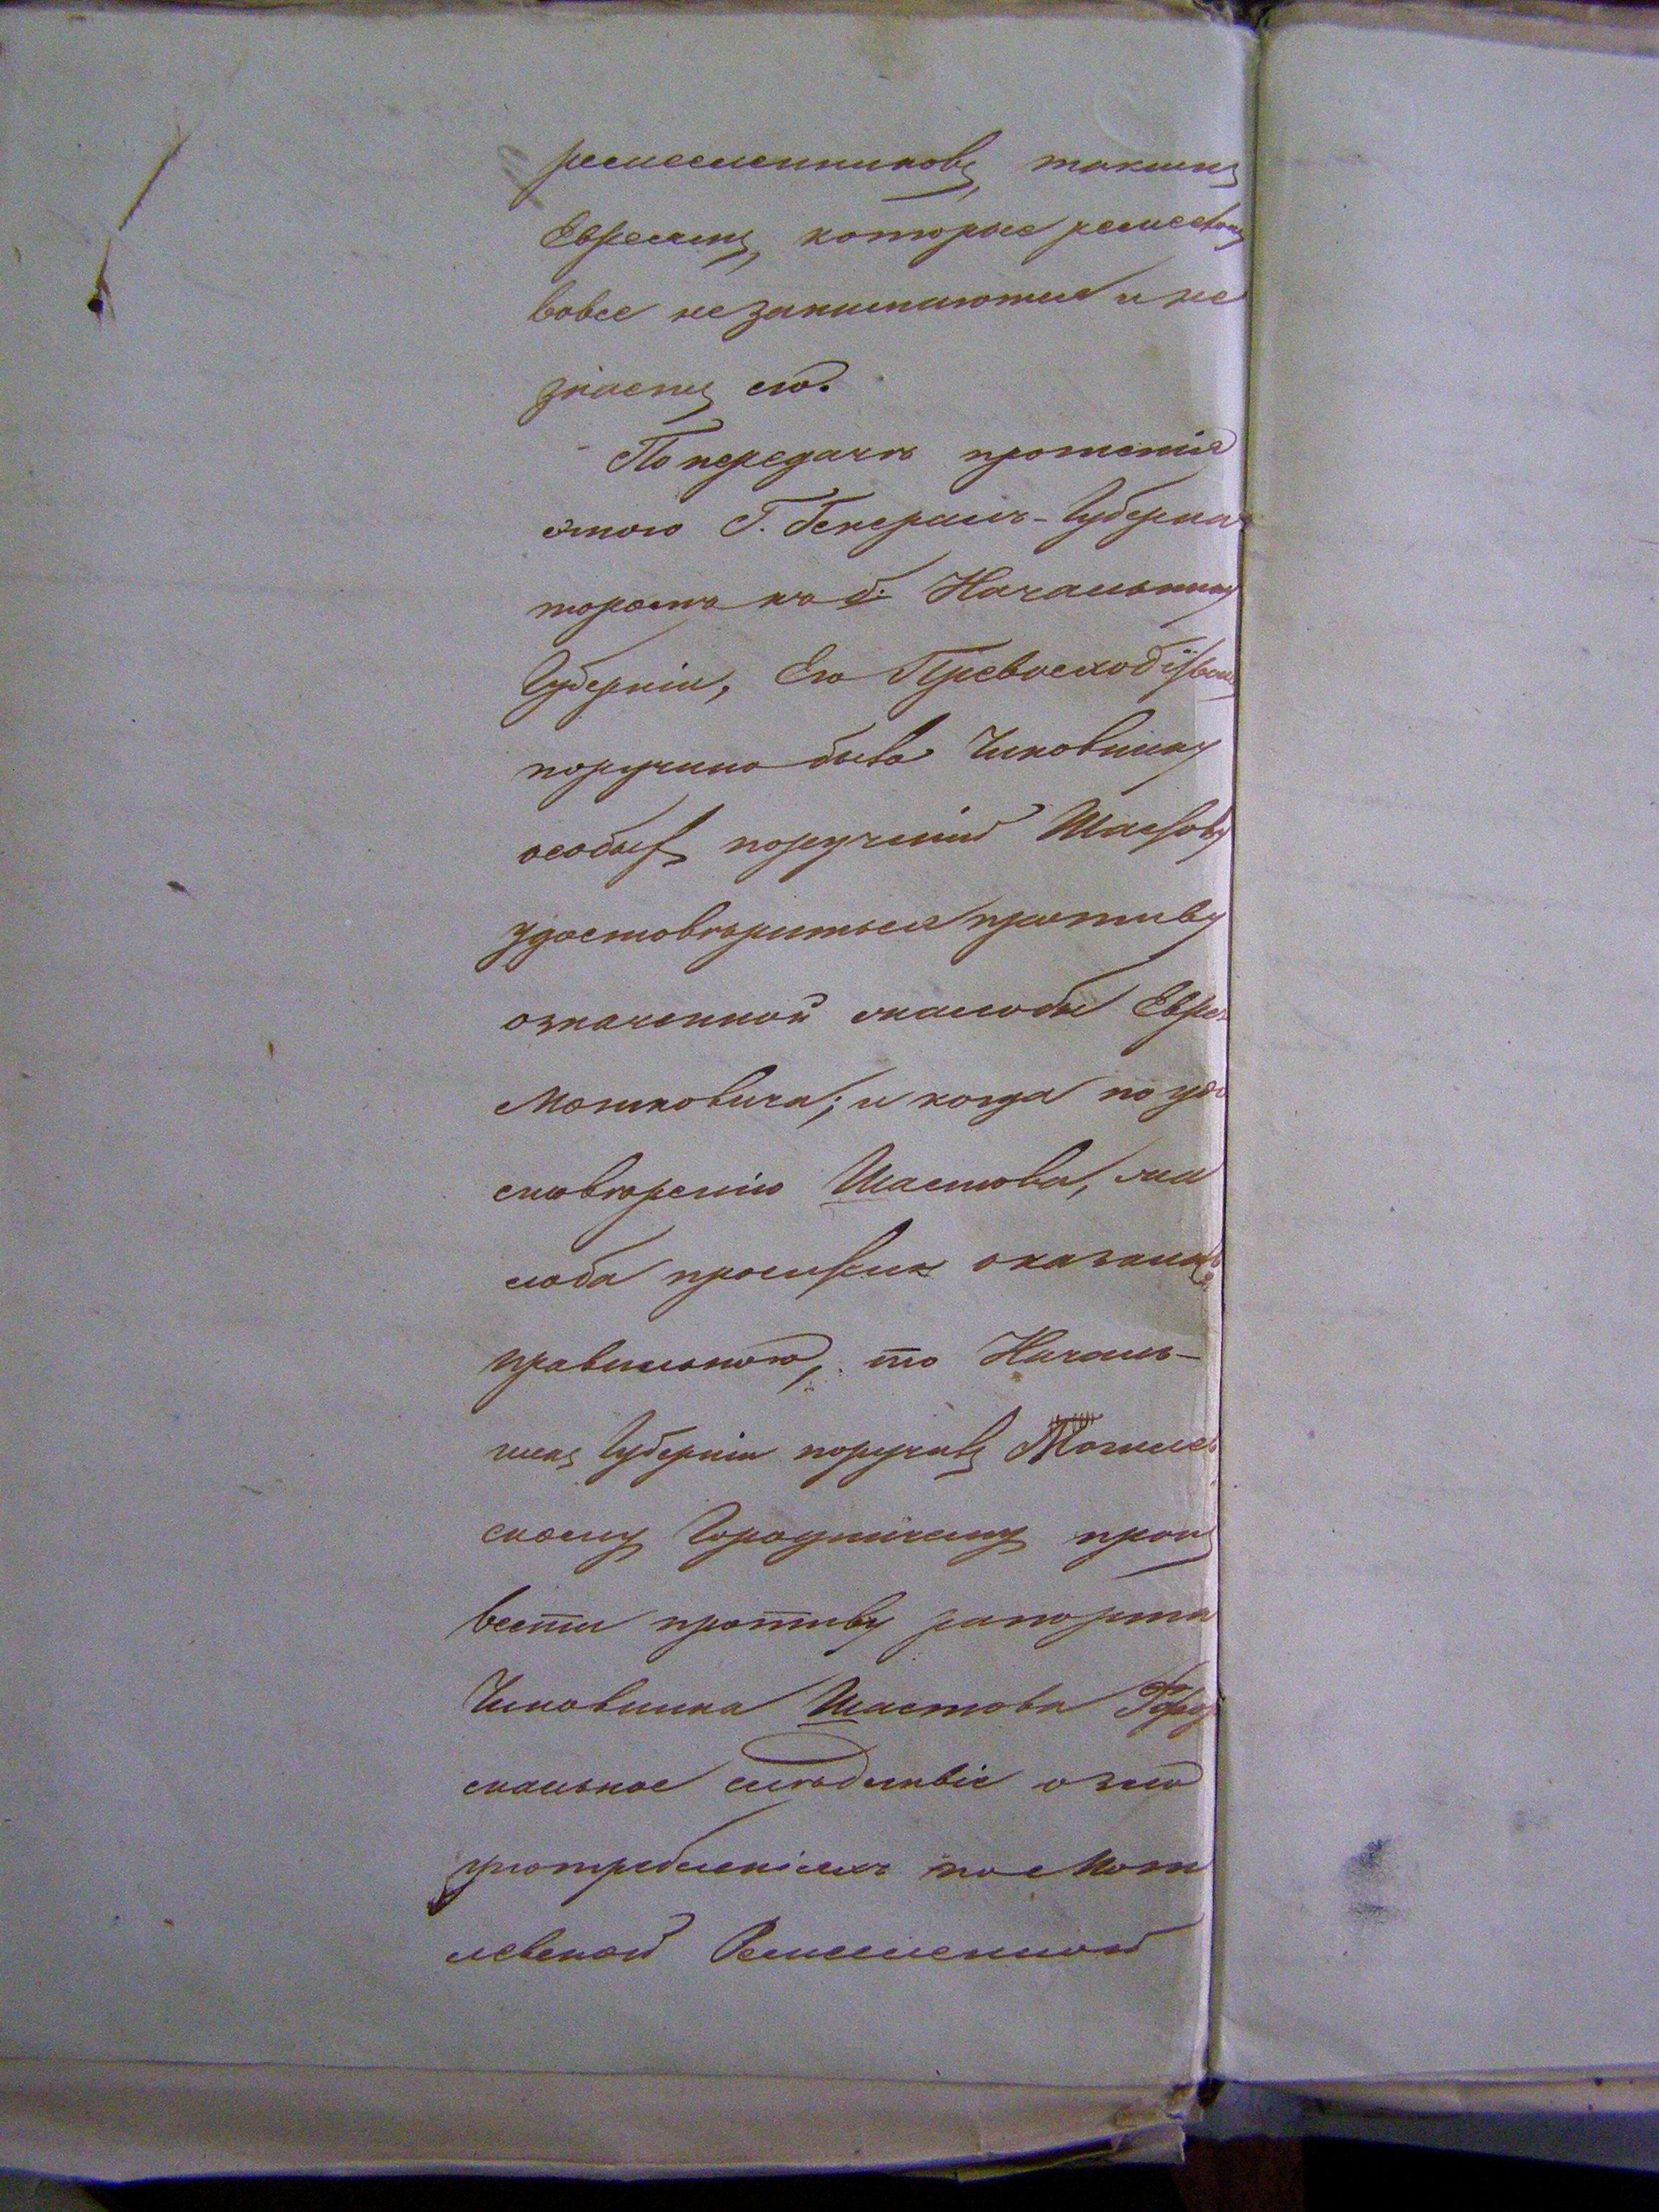 ремесленниковъ, такимъ
Евреямъ, которые ремесломъ
вовсе не занимаются и не
знаютъ его.
По передачѣ прошенія
этого Г. Генералъ-Губерна
торомъ къ б. Начальнику
Губерніи, Его Превосходительствомъ
поручено было Чиновнику
особыхъ порученій Шастову
удостовѣриться противу
означенной жалобы Еврея
Мошковича; и когда по удо
стовѣренію Шастова, жа
лоба просителя оказалась
правильною, то Началь-
никъ Губерніи поручивъ Могилев
скому Городничему произ
вести противу рапорта
Чиновника Шастова Фор
мальное слѣдствіе о зло
употребленіяхъ по Моги
левской Ремесленной